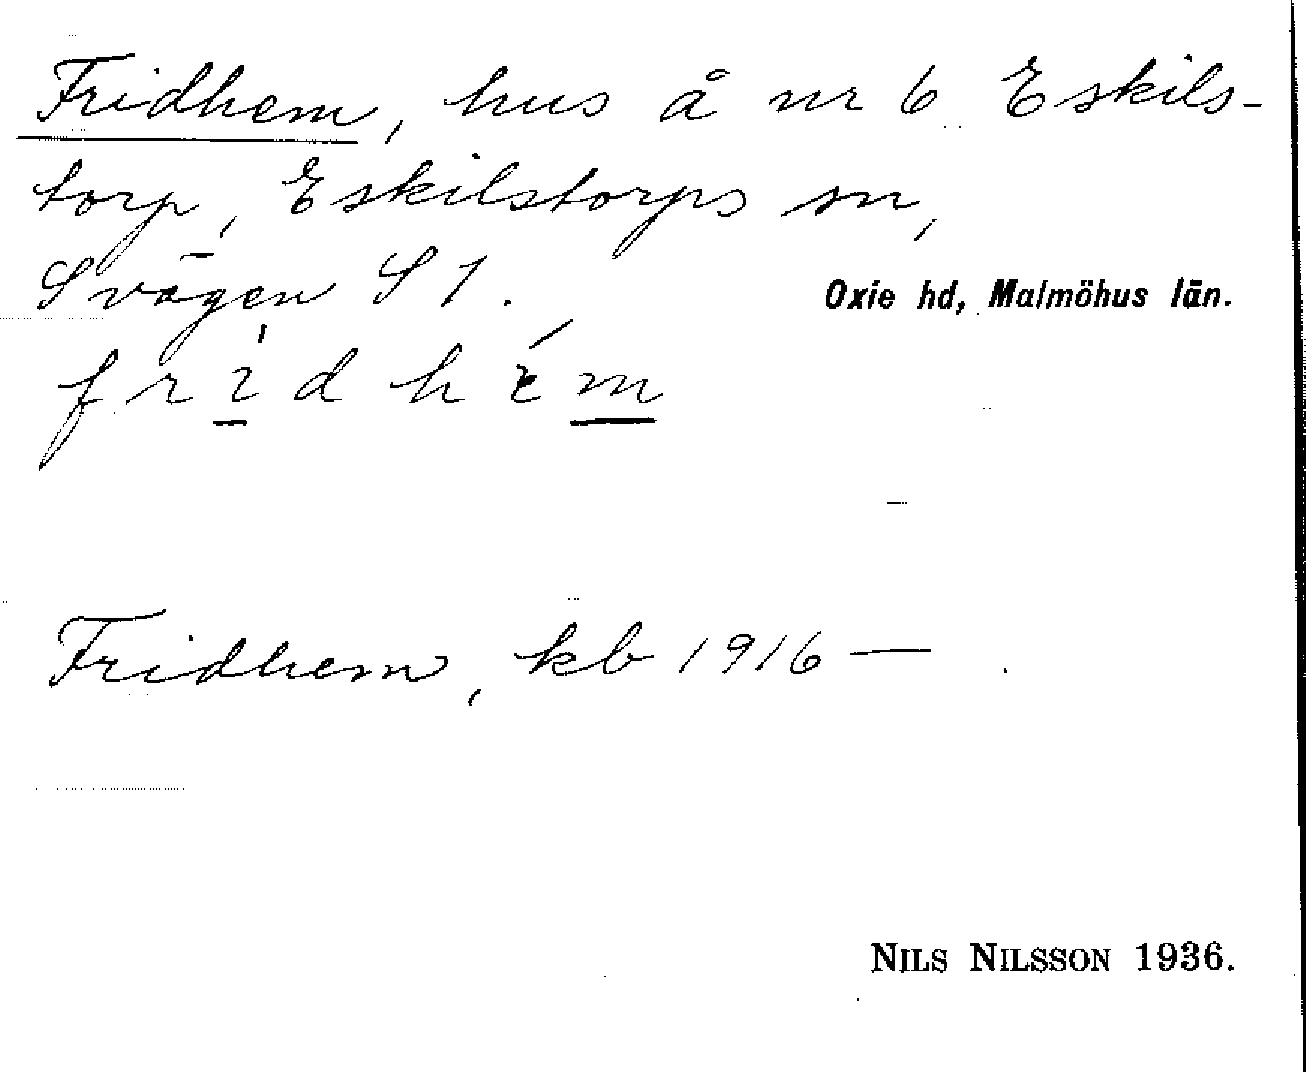 Fridhem, hus å nr 6 Eskils-
torp, Eskilstorps sn,
Svägen S 1.
Oxie hd, Malmöhus län.
fridhem
Fridhem, kb 1916 —
NILS NILSSON 1936.